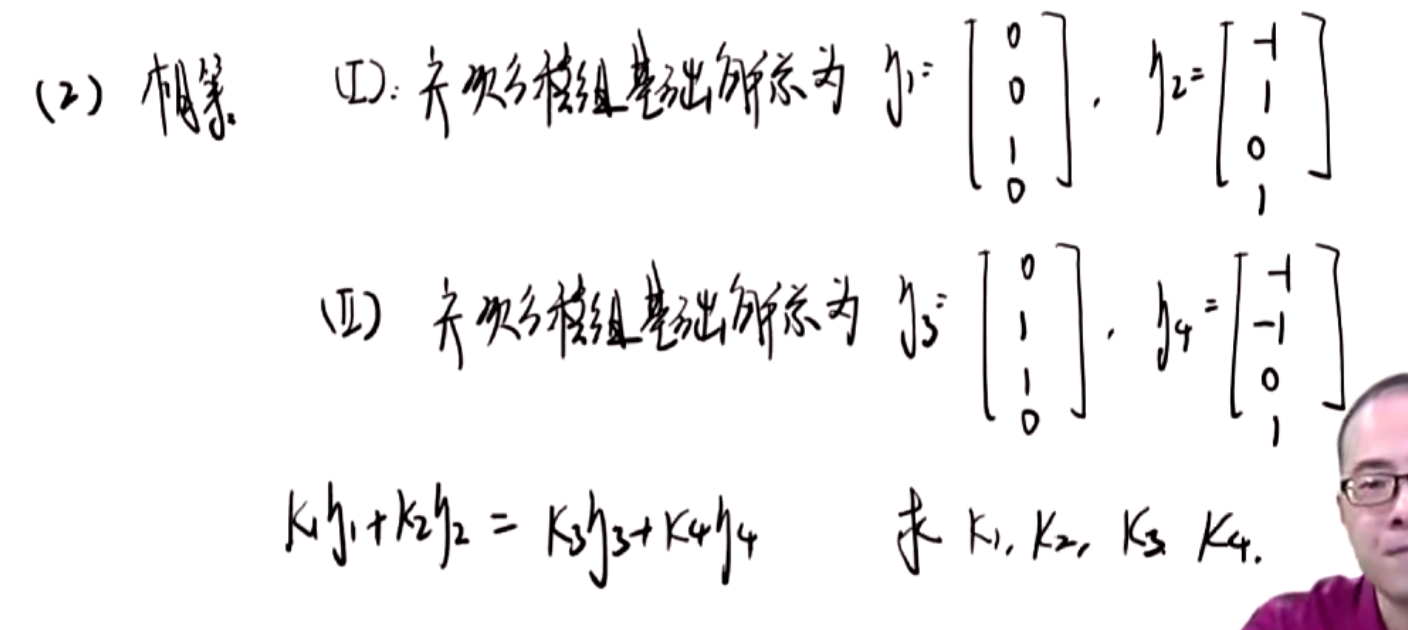 (2) 相等. (I): 齐次方程组基础解系为 η₁= [0 0 1 0], η₂= [-1 1 0 1]
(II) 齐次方程组基础解系为 η₃= [0 1 1 0], η₄= [-1 -1 0 1]
k₁η₁+k₂η₂ = k₃η₃+k₄η₄ 求 k₁, k₂, k₃ k₄.